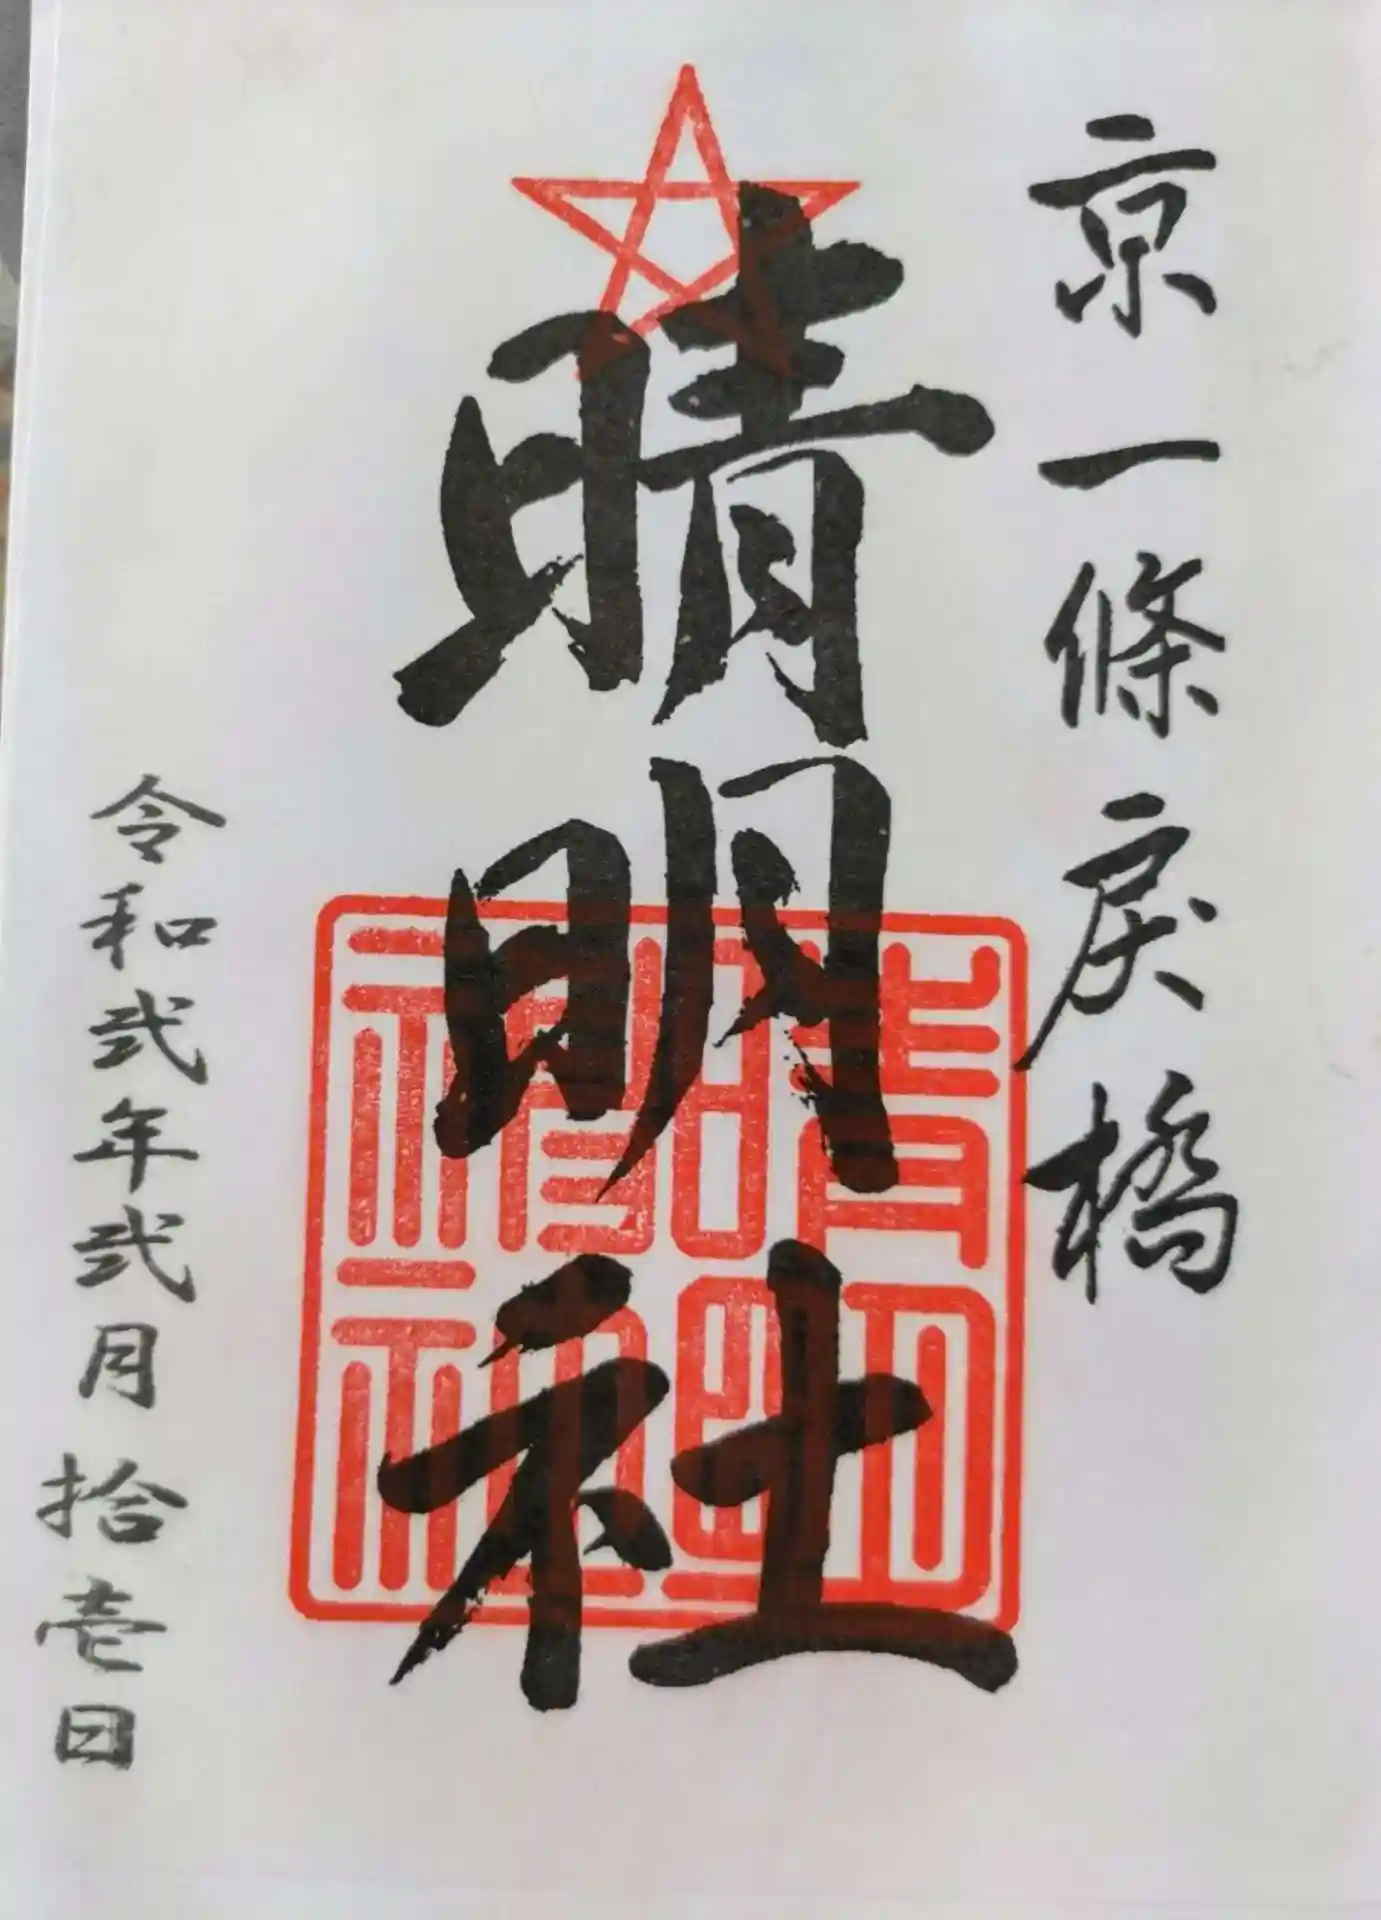 京一條戻橋
晴明社
晴明
神社
令和弐年弐月拾壱日